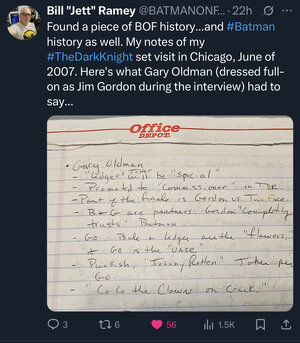 Bill "Jett" Ramey @BATMANONF... · 22h
Found a piece of BOF history...and #Batman
history as well. My notes of my
#TheDarkKnight set visit in Chicago, June of
2007. Here's what Gary Oldman (dressed full-
on as Jim Gordon during the interview) had to
say...
Office
DEPOT
• Gary Oldman
- "Ledger's Joker will be "special"
- Promoted to "Commissioner" in TDK.
- Part of the finale is Gordon vs. Two Face.
- B & G are partners. Gordon "completly
trusts" Batman.
- GO. Bale & Ledger are the "flowers,"
& GO is the "vase."
- Punkish, "Johnny Rotten" Joker per
GO.
- "Co Co the Clown on Crack."
3 6 56 1.5K